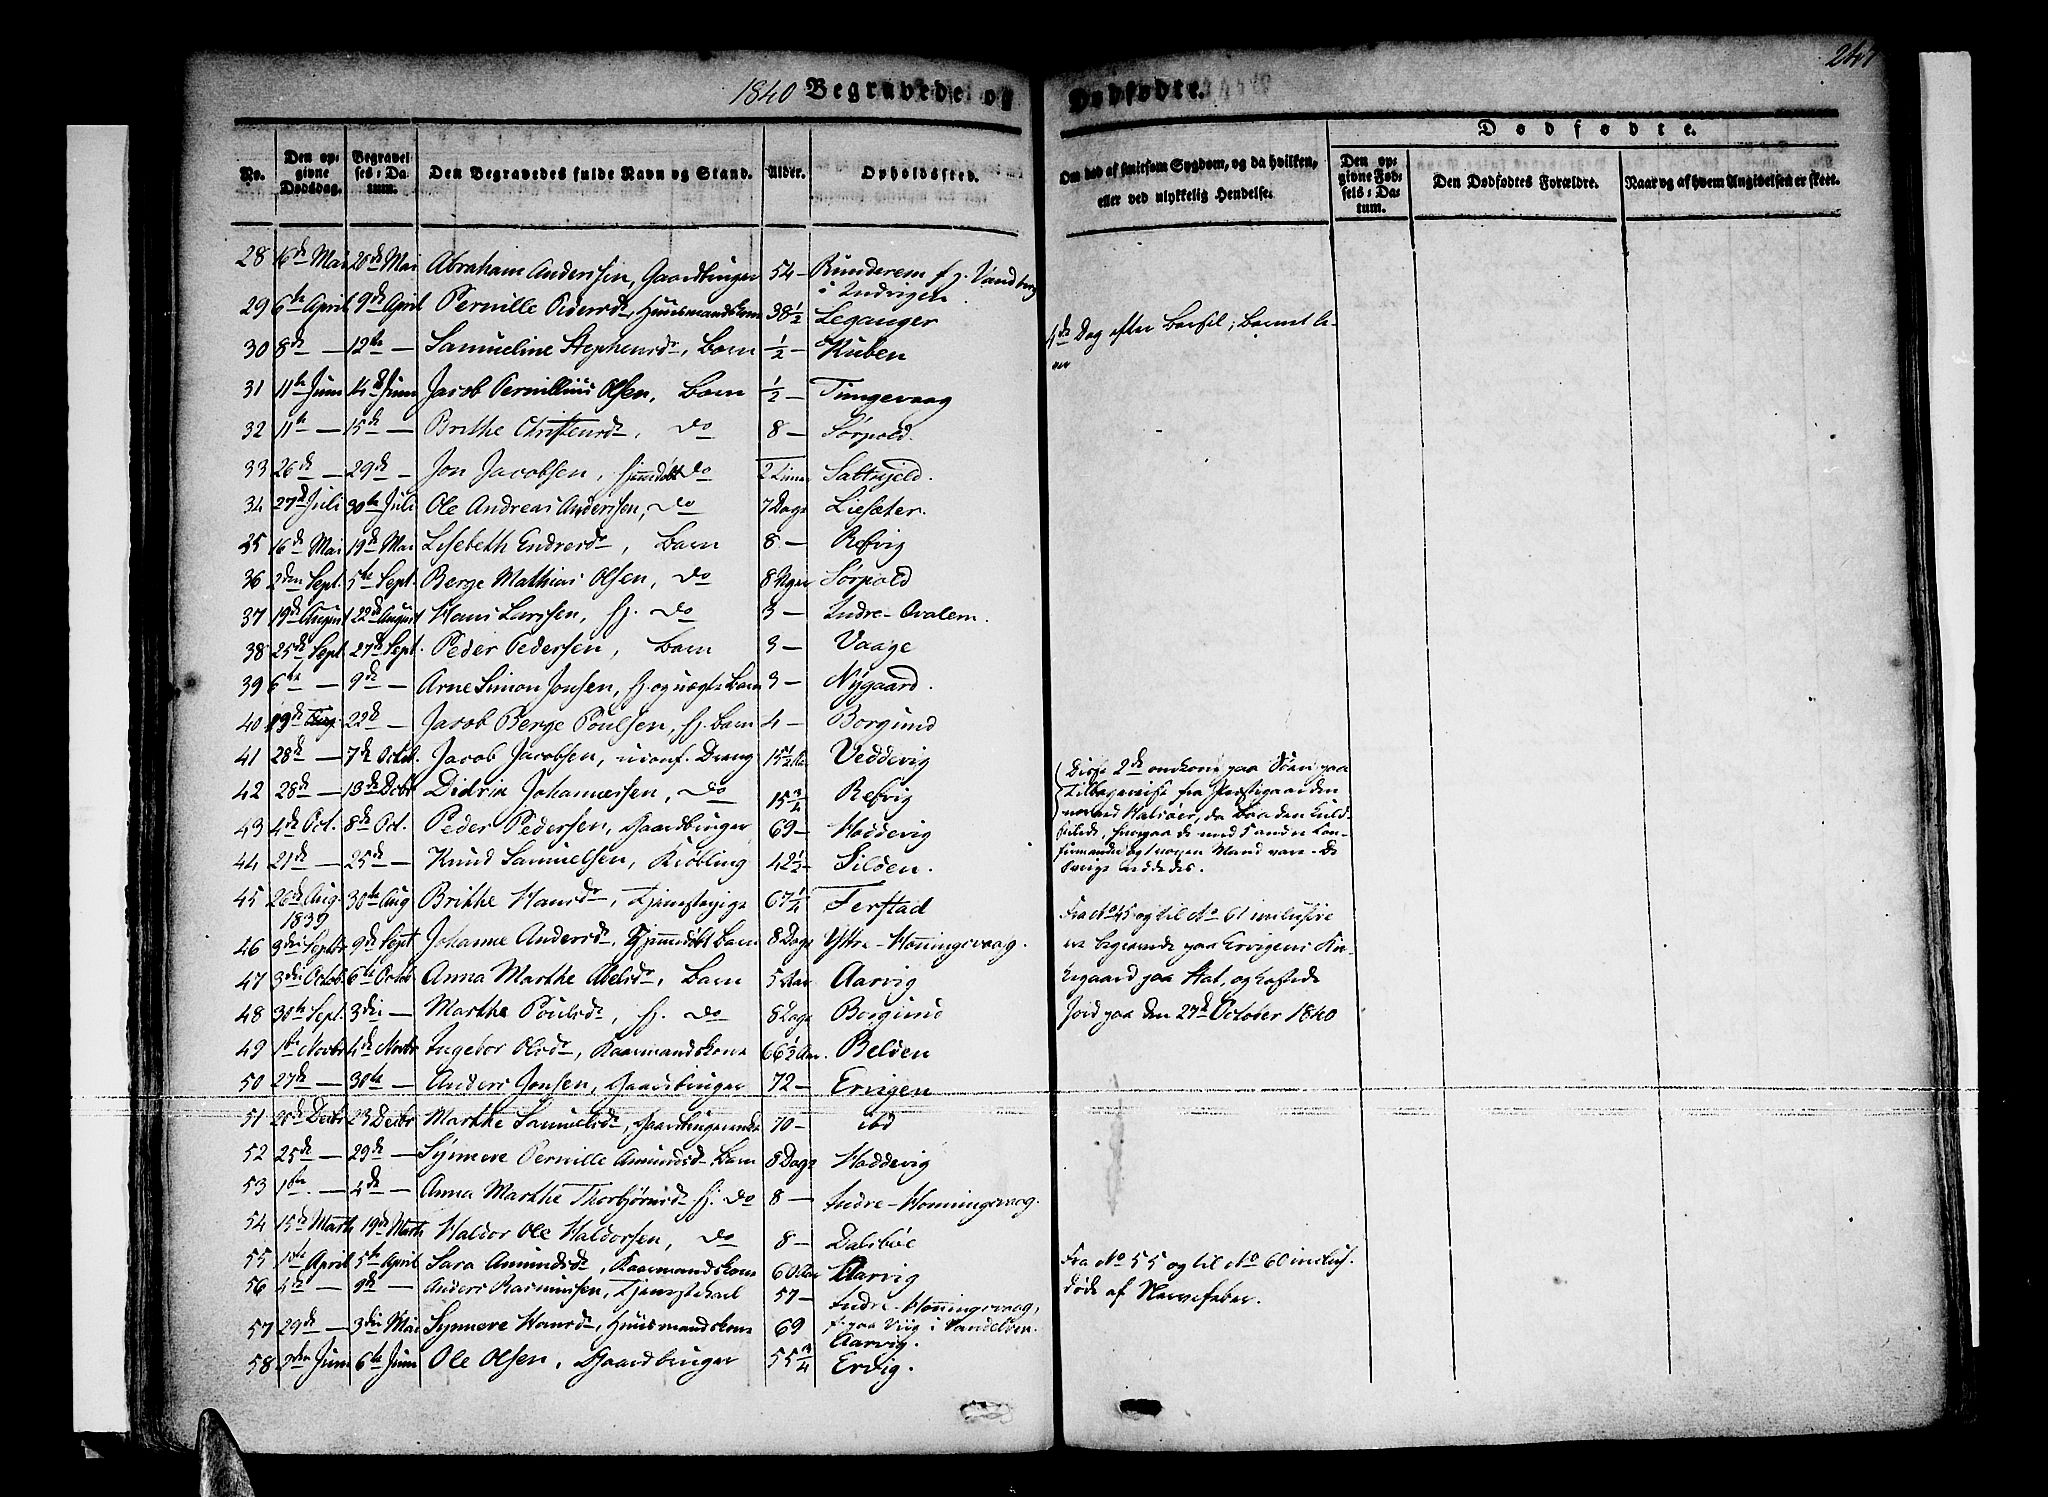 247
1840 Begravede og Dødfødte.
Dødfødte.
No. Den opgivne Dødsdag. Begravelses-Datum. Den Begravedes fulde Navn og Stand. Alder. Opholdssted. Om død af smitsom Sygdom, og da hvilken, eller ved ulykkelig Hendelse. Den opgivne Fødsels-Datum. Den Dødfødtes Forældre. Naar og af hvem Angivelsen er skeet.
28 16de Mai 20de Mai Abraham Anderssen, Gaardbruger 54 –
i Indvigen
29 6te April 9de April Pernille Pedersdr, Huusmandskone 38½ Leganger
4de Dag efter Barsel; Barnet le-
ver
30 8de — 12te — Samueline Stephensdr, Barn ½ – Kuben
31 11te Juni 14de Juni Jacob Pernillius Olsen, Barn ½ – Tungevaag
32 11te — 15de — Brithe Christensdr, do 8 – Sørpold.
33 26de — 29de — Jon Jacobsen, hjemdøbt do 2 Timer Saltkjeld.
34 27de Juli 30te Juli Ole Andreas Anderssen, do 7 Dage Liesæter.
35 16de Mai 19de Mai Lisebeth Endresdr, Barn 8 – Refvig
36 2den Sept. 5te Sept. Berge Mathias Olsen, do 8 Uger Sørpold
37 19de August 22de August Hans Larssen, hj. do 3 – Indre-Qvalem.
38 25de Sept. 27de Sept. Peder Pedersen, Barn 3 – Vaage
39 6te — 9de — Arne Simon Jonsen, hj. og uægte Barn 3 – Nygaard.
40 19de 22de — Jacob Berge Poulsen, hj. Barn 4 – Borgund
41 28de — 7de Octob. Jacob Jacobsen, uconf. Dreng 15½ Aar Veddevig
42 28de — 13de Octbr Didrik Johannessen, do 15¾ Refvig
Disse 2de omkom paa Søen paa
Tilbagereise fra Præstegaarden
ved Halsør, da Baaden kuld-
seilede, hvorpaa de med 5 andre Con-
firmander og 1 voxen Mand vare. De
øvrige reddedes.
43 4de Oct. 8de Oct. Peder Pedersen, Gaardbruger 69 – Hoddevig
44 21de — 25de — Knud Samuelsen, Krøbling 42½ – Silden.
45 26de Aug. 1839 30te Aug Brithe Hansdr, Tjenestepige 67¼ Ferstad
Fra No 45 og til No 61 inclusive
ere begravede paa Ervigens Kir-
kegaard paa Stat, og kastede
Jord paa den 27de October 1840
46 3die Septbr 9de Sept Johanne Andersdr, Hjemmedøbt Barn 8 Dage Ystre-Honningsvaag.
47 3die Octob. 6te Octob Anna Marthe Abelsdr, Barn 5 Aar Aarvig
48 30te Sept. 3die — Marthe Poulsdr, hj. do 8 Dage Borgund
49 1ste Novbr 4de Novbr Ingebor Olsdr, Kaarmandskone 66½ Aar. Belden
50 27de — 30te — Anders Jonsen, Gaardbruger 72 – Ervigen
51 20de Decbr 23 Decbr Marthe Samuelsdr, Gaardbrugerenke 70 – ibd
52 25de — 29de — Synneve Pernille Amundsdr Barn 8 Dage Hoddevig
53 1ste — 4de — Anna Marthe Thorbjørnsdr hj. do 8 – Indre-Honningsvaag.
54 15de Marth 19de Marth Haldor Ole Haldorsen, do 8 – Dalsbøe
55 1ste April 5te April Sara Amundsdr, Kaarmandskone 60 Aar Aarvig
Fra No 55 og til No 60 inclus.
døde af Nervefeber.
56 4de — 9de — Anders Rasmussen, Tjenestekarl 57 – Indre-Honningsvaag,
57 29de — 3die Mai Synneve Hansdr, Huusmandskone 69 Aarvig.
58 2den Juni 6te Juni Ole Olsen, Gaardbruger 55¾ Ervig.